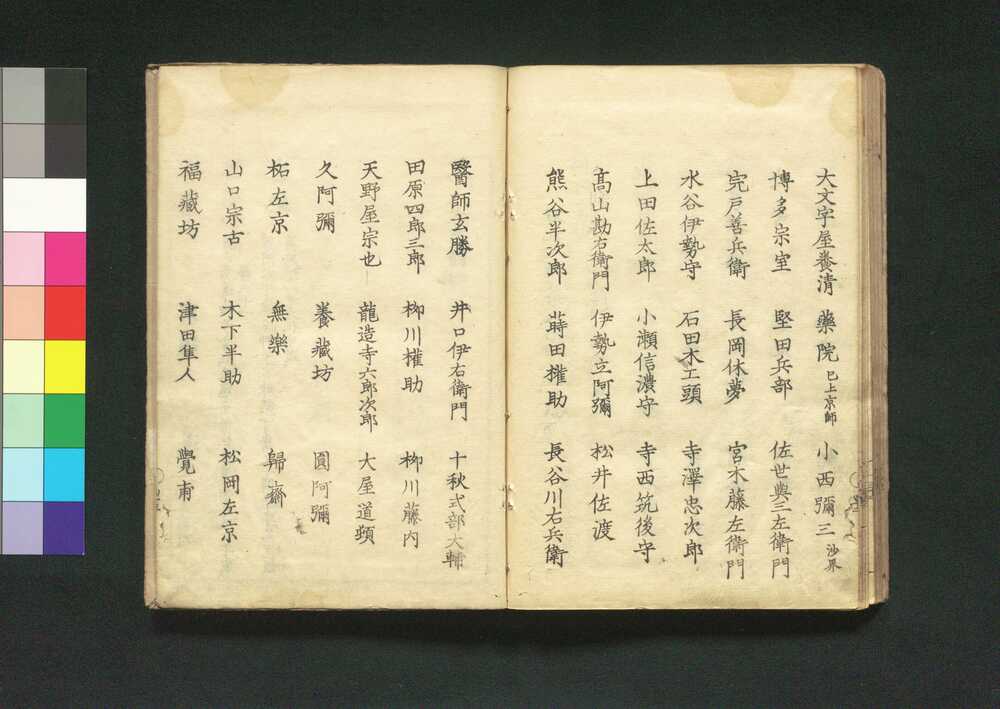 大文字屋養清 藥院 已上京師 小西彌三 沙界
博多宗室 堅田兵部 佐世與三左衛門
宍戸善兵衛 長岡休夢 宮木藤左衛門
水谷伊勢守 石田木工頭 寺澤忠次郎
上田佐太郎 小瀬信濃守 寺西筑後守
髙山勘右衛門 伊勢立阿彌 松井佐渡
熊谷半次郎 蒔田權助 長谷川右兵衛
醫師玄勝 井口伊右衛門 十秋式部大輔
田原四郎三郎 栁川權助 栁川藤内
天野屋宗也 龍造寺六郎次郎 大屋道顗
久阿彌 養藏坊 圓阿彌
柘左京 無樂 歸齋
山口宗古 木下半助 松岡左京
福藏坊 津田隼人 覺甫